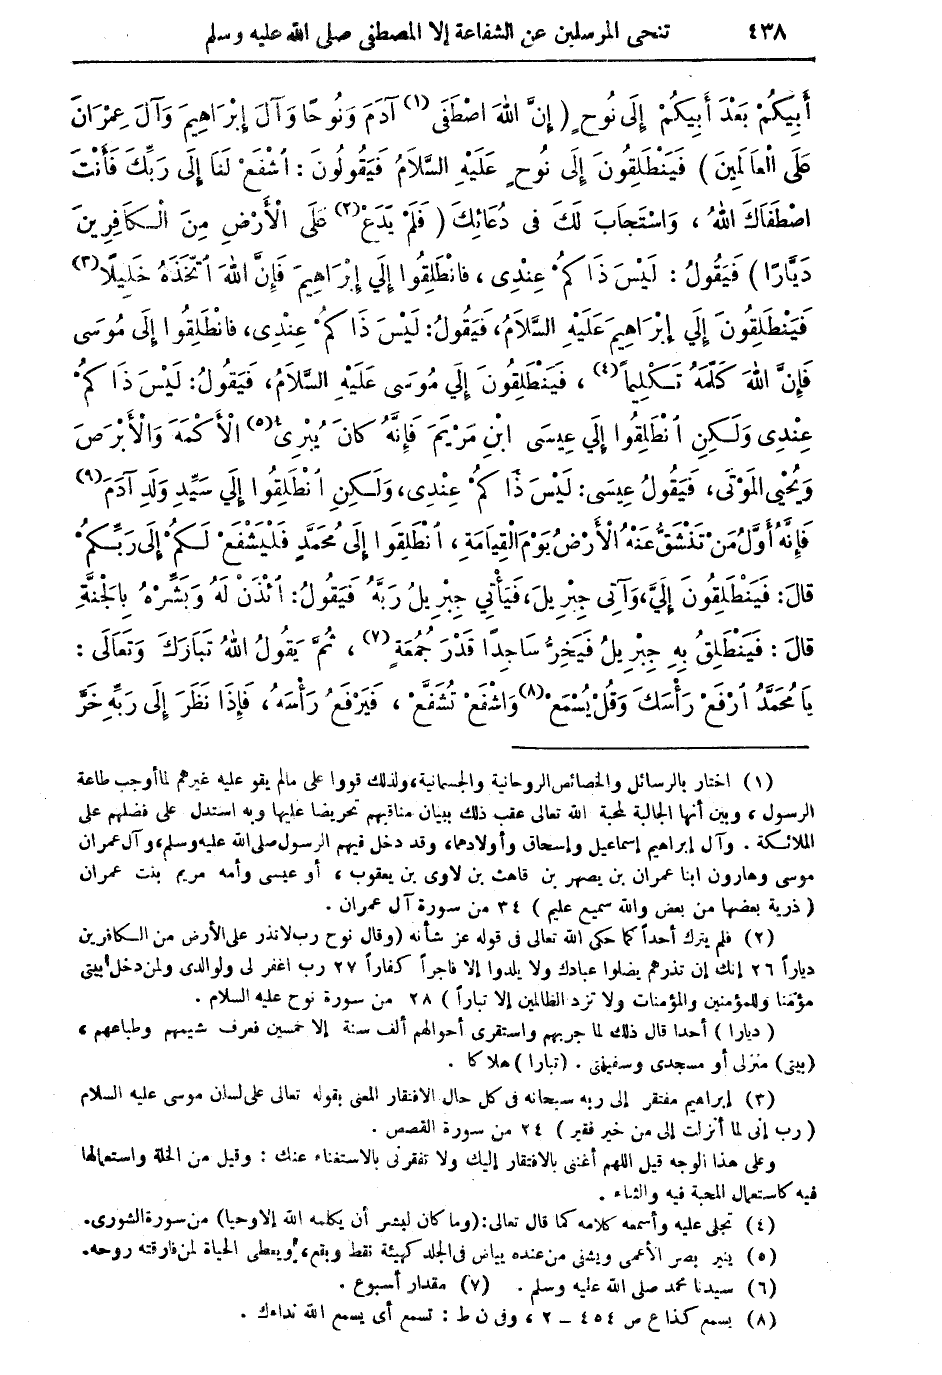 ٤٣٨ تنحى المرسلين عن الشفاعة إلا المصطفى صلى الله عليه وسلم
أَبِيكُمْ بَعْدَ أَبِيكُمْ إِلَى نُوحٍ ( إِنَّ اللهَ اصْطَفَى (١) آدَمَ وَنُوحًا وَآلَ إِبْرَاهِيمَ وَآلَ عِمْرَانَ
عَلَى الْعَالَمِينَ ) فَيَنْطَلِقُونَ إِلَى نُوحٍ عَلَيْهِ السَّلَامُ فَيَقُولُونَ : اُشْفَعْ لَنَا إِلَى رَبِّكَ فَأَنْتَ
اصْطَفَاكَ اللهُ ، وَاسْتَجَابَ لَكَ فِى دُعَائِكَ ( فَلَمْ يَدَعْ (٢) عَلَى الْأَرْضِ مِنَ الْكَافِرِينَ
دَيَّارًا ) فَيَقُولُ : لَيْسَ ذَاكُمْ عِنْدِى ، فَانْطَلِقُوا إِلَي إِبْرَاهِيمَ فَإِنَّ اللهَ اُتَّخَذَهُ خَلِيلًا (٣)
فَيَنْطَلِقُونَ إِلَي إِبْرَاهِيمَ عَلَيْهِ السَّلَامُ، فَيَقُولُ: لَيْسَ ذَاكُمْ عِنْدِى، فَانْطَلِقُوا إِلَى مُوسَى
فَإِنَّ اللهَ كَلَّمَهُ تَكْلِيماً (٤) ، فَيَنْطَلِقُونَ إِلَي مُوسَى عَلَيْهِ السَّلَامُ، فَيَقُولُ: لَيْسَ ذَاكُمْ
عِنْدِى وَلَكِنِ اُنْطَلِقُوا إِلَي عِيسَى ابْنِ مَرْيَمَ فَإِنَّهُ كَانَ يُبْرِئُ (٥) الْأَكْمَهَ وَالْأَبْرَصَ
وَيُحْيِى الْمَوْتَى، فَيَقُولُ عِيسَى: لَيْسَ ذَاكُمْ عِنْدِى، وَلَكِنِ اُنْطَلِقُوا إِلَي سَيِّدِ وَلَدِ آدَمَ (٩)
فَإِنَّهُ أَوَّلُ مَنْ تَنْشَقُّ عَنْهُ الْأَرْضُ يَوْمَ الْقِيَامَةِ ، اُنْطَلِقُوا إِلَى مُحَمَّدٍ فَلْيَشْفَعْ لَكُمْ إِلَى رَبِّكُمْ
قَالَ: فَيَنْطَلِقُونَ إِلَيَّ، وَآتِى جِبْرِيلَ، فَيَأْتِي جِبْرِيلُ رَبَّهُ فَيَقُولُ: اُئْذَنْ لَهُ وَبَشِّرْهُ بِالْجَنَّةِ
قَالَ : فَيَنْطَلِقُ بِهِ جِبْرِيلُ فَيَخِرُّ سَاجِدًا قَدْرَ جُمُعَةٍ (٧) ، ثُمَّ يَقُولُ اللهُ تَبَارَكَ وَتَعَالَى :
يَا مُحَمَّدُ اُرْفَعْ رَأْسَكَ وَقُلْ يُسْمَعْ (٨) وَاشْفَعْ تُشَفَّعْ ، فَيَرْفَعُ رَأْسَهُ ، فَإِذَا نَظَرَ إِلَى رَبِّهِ خَرَّ
(١) اختار بالرسائل والخصائص الروحانية والجسمانية، ولذلك قووا على مالم يقو عليه غيرهم لما أوجب طاعة
الرسول ، وبين أنها الجالبة لمحبة الله تعالى عقب ذلك ببيان مناقبهم تحريضا عليها وبه استدل على فضلهم على
الملائكة . وآل إبراهيم إسماعيل وإسحاق وأولادهما، وقد دخل فيهم الرسول صلى الله عليه وسلم، وآل عمران
موسى وهارون ابنا عمران بن يصهر بن قاهث بن لاوى بن يعقوب ، أو عيسى وأمه مريم بنت عمران
( ذرية بعضها من بعض والله سميع عليم ) ٣٤ من سورة آل عمران .
(٢) فلم يترك أحداً كما حكى الله تعالى فى قوله عز شأنه (وقال نوح رب لاتذر على الأرض من الكافرين
دياراً ٢٦ إنك إن تذرهم يضلوا عبادك ولا يلدوا إلا فاجراً كفاراً ٢٧ رب اغفر لى ولوالدى ولمن دخل بيتى
مؤمنا وللمؤمنين والمؤمنات ولا تزد الظالمين إلا تباراً ) ٢٨ من سورة نوح عليه السلام .
( ديارا ) أحدا قال ذلك لما جربهم واستقرى أحوالهم ألف سنة إلا خمسين فعرف شيمهم وطباعهم ،
(بيتى) منزلى أو مسجدى وسفينتى . (تبارا) هلاكا .
(٣) إبراهيم مفتقر إلى ربه سبحانه فى كل حال الافتقار المعنى بقوله تعالى على لسان موسى عليه السلام
( رب إنى لما أنزلت إلى من خير فقير ) ٢٤ من سورة القصص .
وعلى هذا الوجه قيل اللهم أغننى بالافتقار إليك ولا تفقرنى بالاستغناء عنك : وقيل من الخلة واستعمالها
فيه كاستعمال المحبة فيه والثناء .
(٤) تجلى عليه وأسمعه كلامه كما قال تعالى:(وما كان لبشر أن يكلمه الله إلا وحيا) من سورة الشورى.
(٥) ينير بصر الأعمى ويشفى من عنده بياض فى الجلد كهيئة نقط وبقع، ويعطى الحياة لمن فارقته روحه.
(٦) سيدنا محمد صلى الله عليه وسلم . (٧) مقدار أسبوع .
(٨) يسمع كذا ع ص ٤٥٤ – ٢ ، وفى ن ط : تسمع أى يسمع الله نداءك .